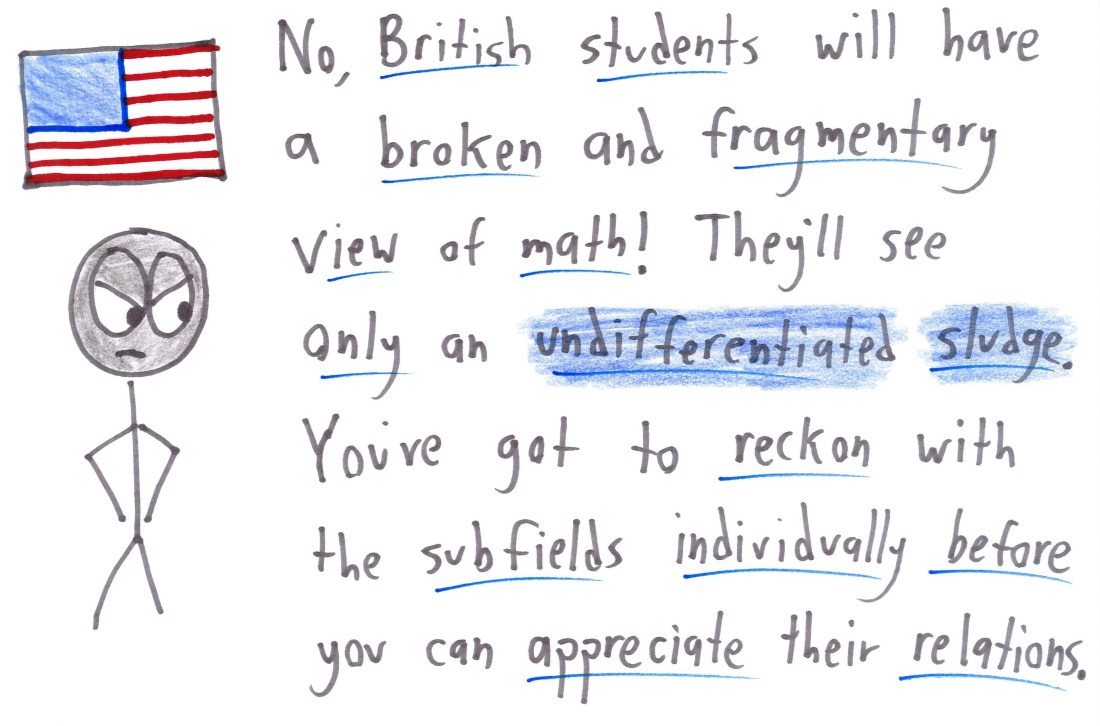 No, British students will have
a broken and fragmentary
view of math! They'll see
only an undifferentiated sludge.
You've got to reckon with
the subfields individually before
you can appreciate their relations.